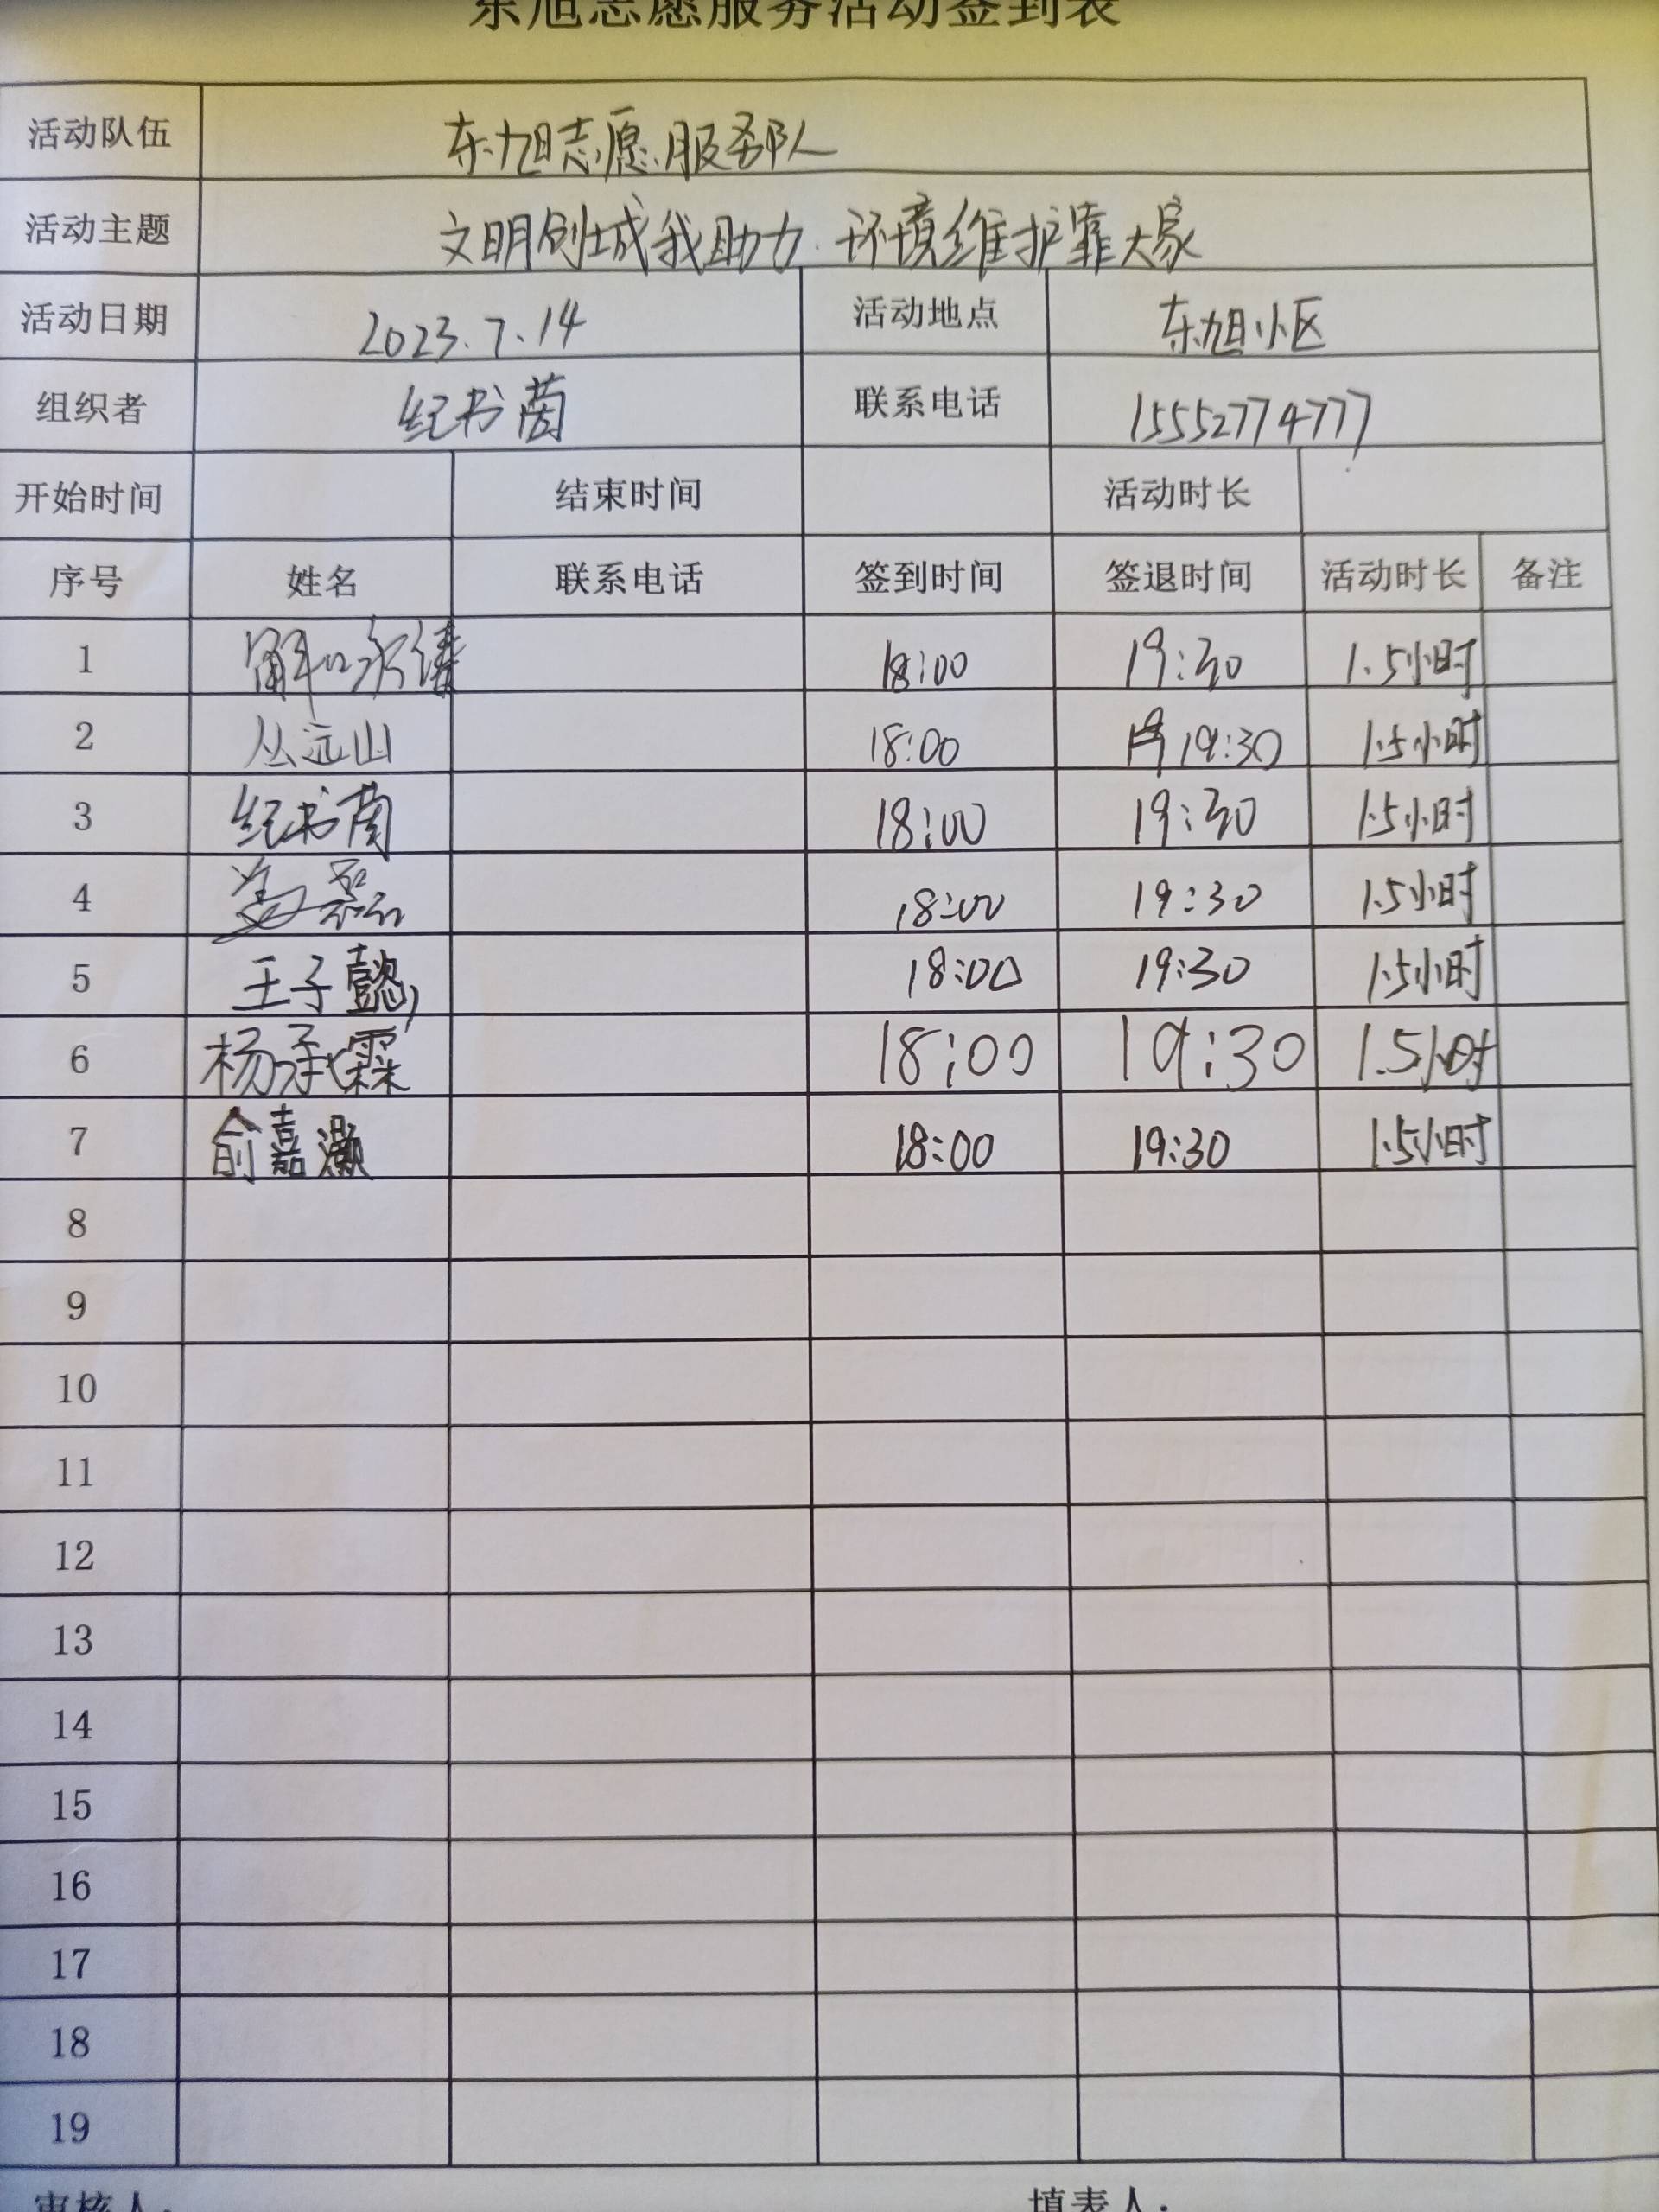 东旭志愿服务活动签到表
活动队伍 东旭志愿服务队
活动主题 文明创城我助力 环境维护靠大家
活动日期 2023.7.14 活动地点 东旭小区
组织者 纪书茵 联系电话 15552774777
开始时间 结束时间 活动时长
序号 姓名 联系电话 签到时间 签退时间 活动时长 备注
1 18:00 19:30 1.5小时
2 丛远山 18:00 19:30 1.5小时
3 纪书茵 18:00 19:30 1.5小时
4 姜磊 18:00 19:30 1.5小时
5 王子懿 18:00 19:30 1.5小时
6 杨承霖 18:00 19:30 1.5小时
7 俞嘉灏 18:00 19:30 1.5小时
8
9
10
11
12
13
14
15
16
17
18
19
审核人: 填表人: